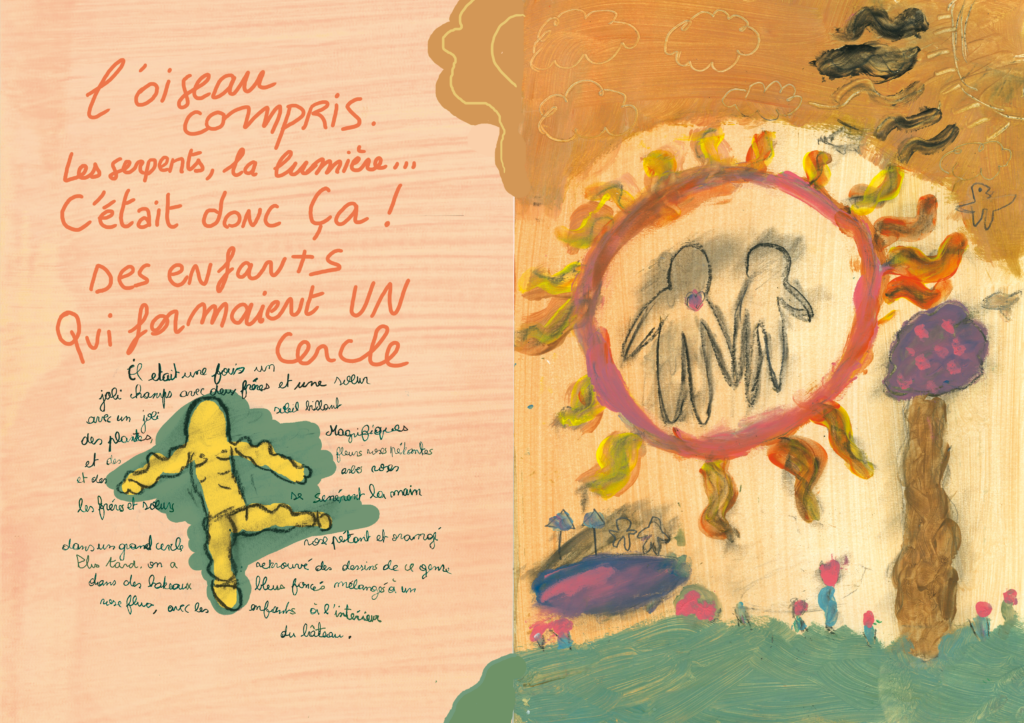 l'oiseau
compris.
Les serpents, la lumière...
C'était donc ça !
Des enfants
Qui formaient UN
cercle
Il etait une fois un
joli champs avec deux frères et une soeur
avec un joli soleil brillant
des plantes, Magnifiques
et des fleurs roses pétantes
et des arbres roses
les frères et soeurs se serrèrent la main
dans un grand cercle rose petant et orangé
Plus tard, on a retrouvé des dessins de ce genre
dans des bateaux bleus foncés mélangé à un
rose fluo, avec les enfants à l'intérieur
du bâteau.